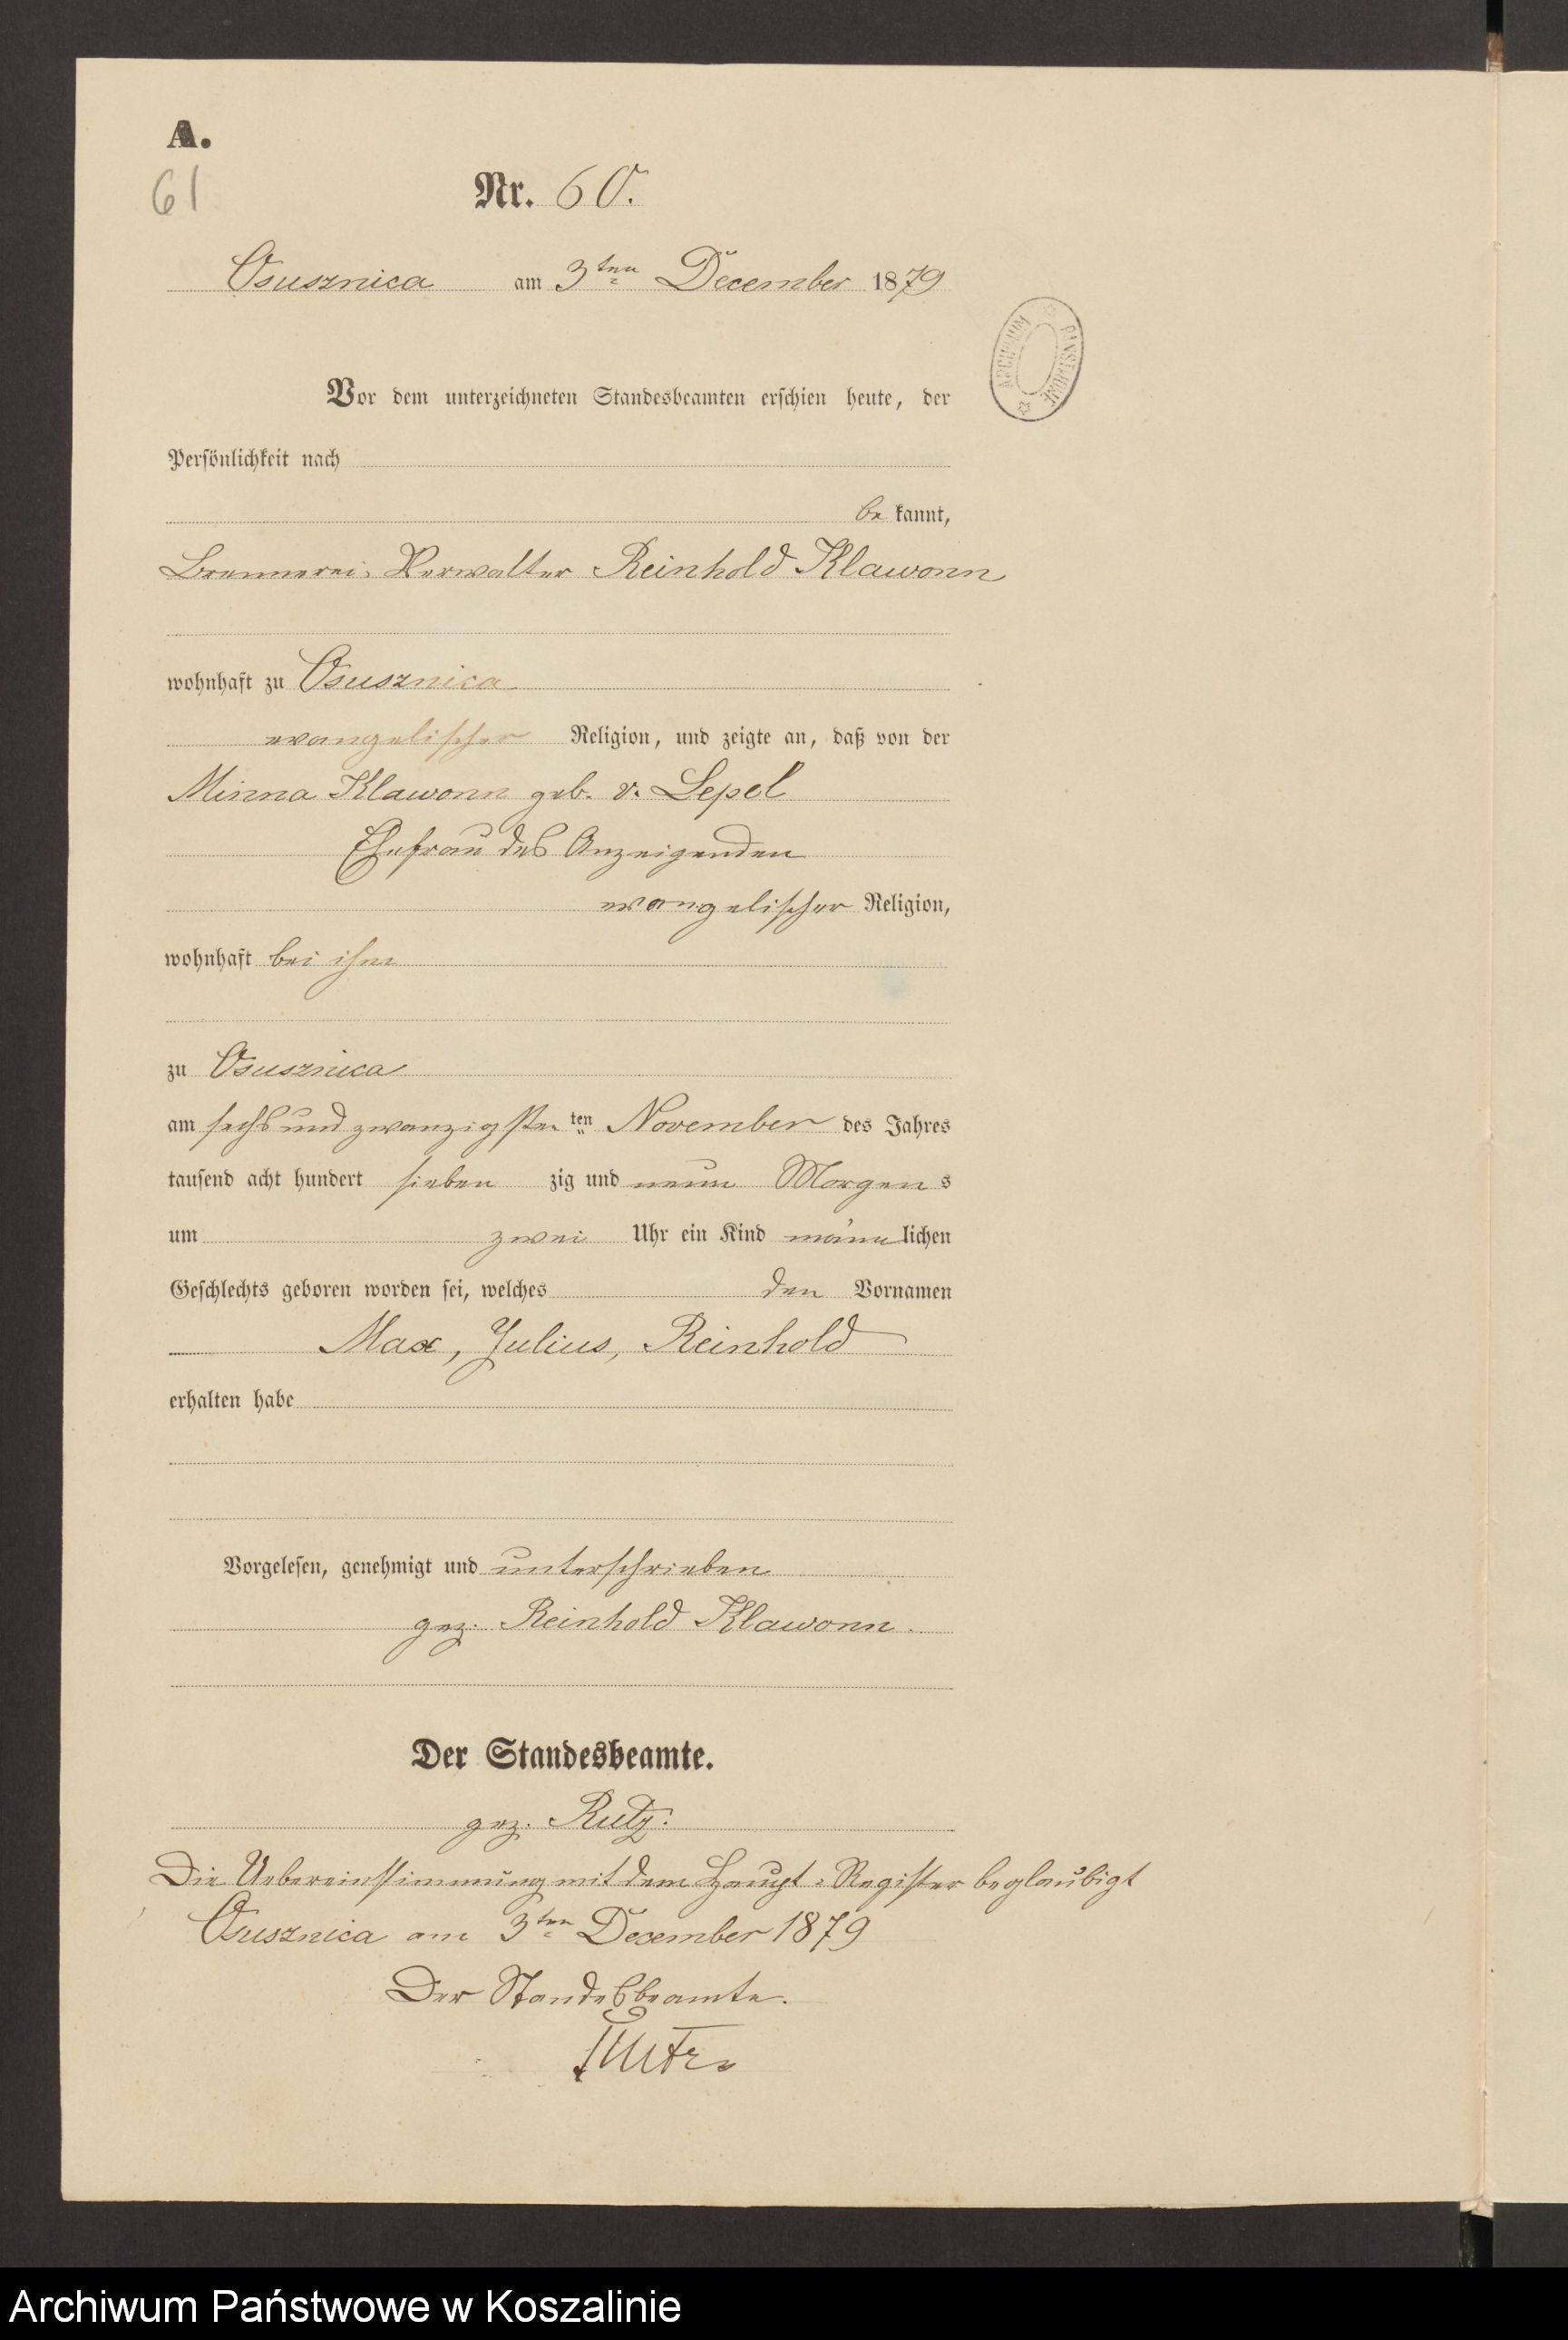 A.
61
Nr. 60.
Osusznica am 3ten December 1879
ARCHIWUM PAŃSTWOWE
Vor dem unterzeichneten Standesbeamten erschien heute, der
Persönlichkeit nach
be kannt,
Brennerei-Verwalter Reinhold Klawonn
wohnhaft zu Osusznica
evangelischer Religion, und zeigte an, daß von der
Minna Klawonn geb. v. Lepel
Ehefrau des Anzeigenden
evangelischer Religion,
wohnhaft bei ihm
zu Osusznica
am sechs und zwanzigsten ten November des Jahres
tausend acht hundert sieben zig und neun Morgens
um zwei Uhr ein Kind männlichen
Geschlechts geboren worden sei, welches den Vornamen
Max, Julius, Reinhold
erhalten habe
Vorgelesen, genehmigt und unterschrieben
gez. Reinhold Klawonn.
Der Standesbeamte.
gez. Rutz.
Die Uebereinstimmung mit dem Haupt-Register beglaubigt
Osusznica am 3ten December 1879
Der Standesbeamte.
Rutz
Archiwum Państwowe w Koszalinie